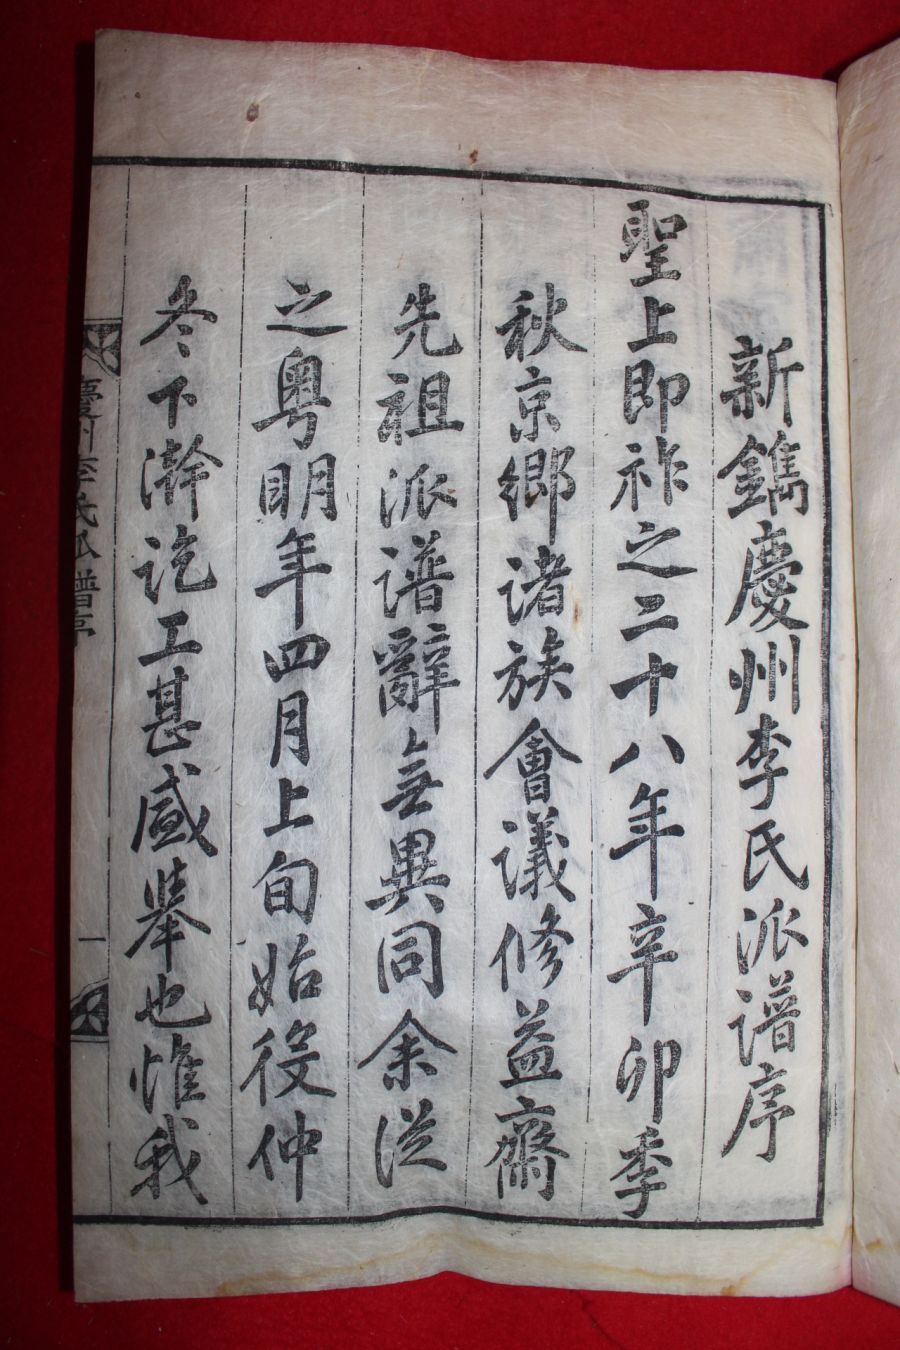 新鐫慶州李氏派譜序
聖上即祚之二十八年辛卯季
秋京鄉諸族會議修益齋
先祖派譜辭無異同余從
之粤明年四月上旬始役仲
冬下澣訖工甚盛舉也惟我
慶州李氏派譜序
一